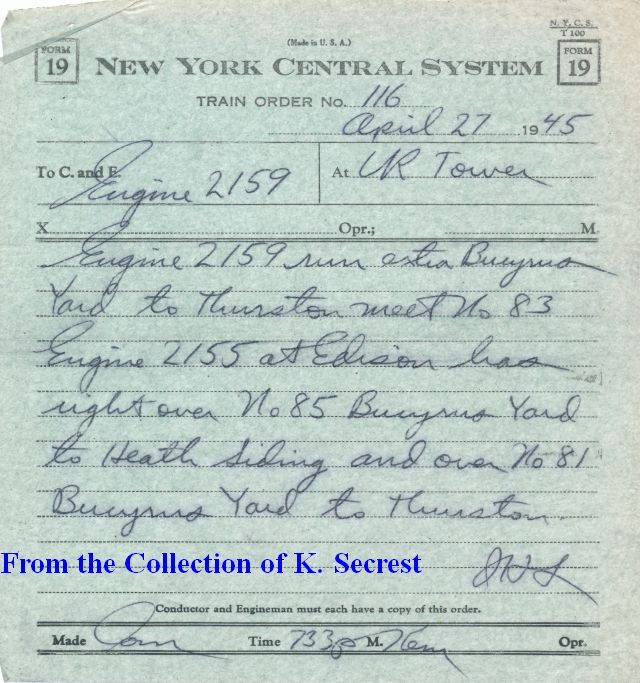 N. Y. C. S.
T 100
(Made in U. S. A.)
FORM 19 NEW YORK CENTRAL SYSTEM FORM 19
TRAIN ORDER No. 116
April 27 1945
To C. and E. Engine 2159 At UR Tower
X Opr.; M
Engine 2159 run extra Bucyrus
Yard to Thurston meet No 83
Engine 2155 at Edison has
right over No 85 Bucyrus Yard
to Heath Siding and over No 81
Bucyrus Yard to Thurston
From the Collection of K. Secrest
Conductor and Engineman must each have a copy of this order.
Made Com Time 733p M. Opr.